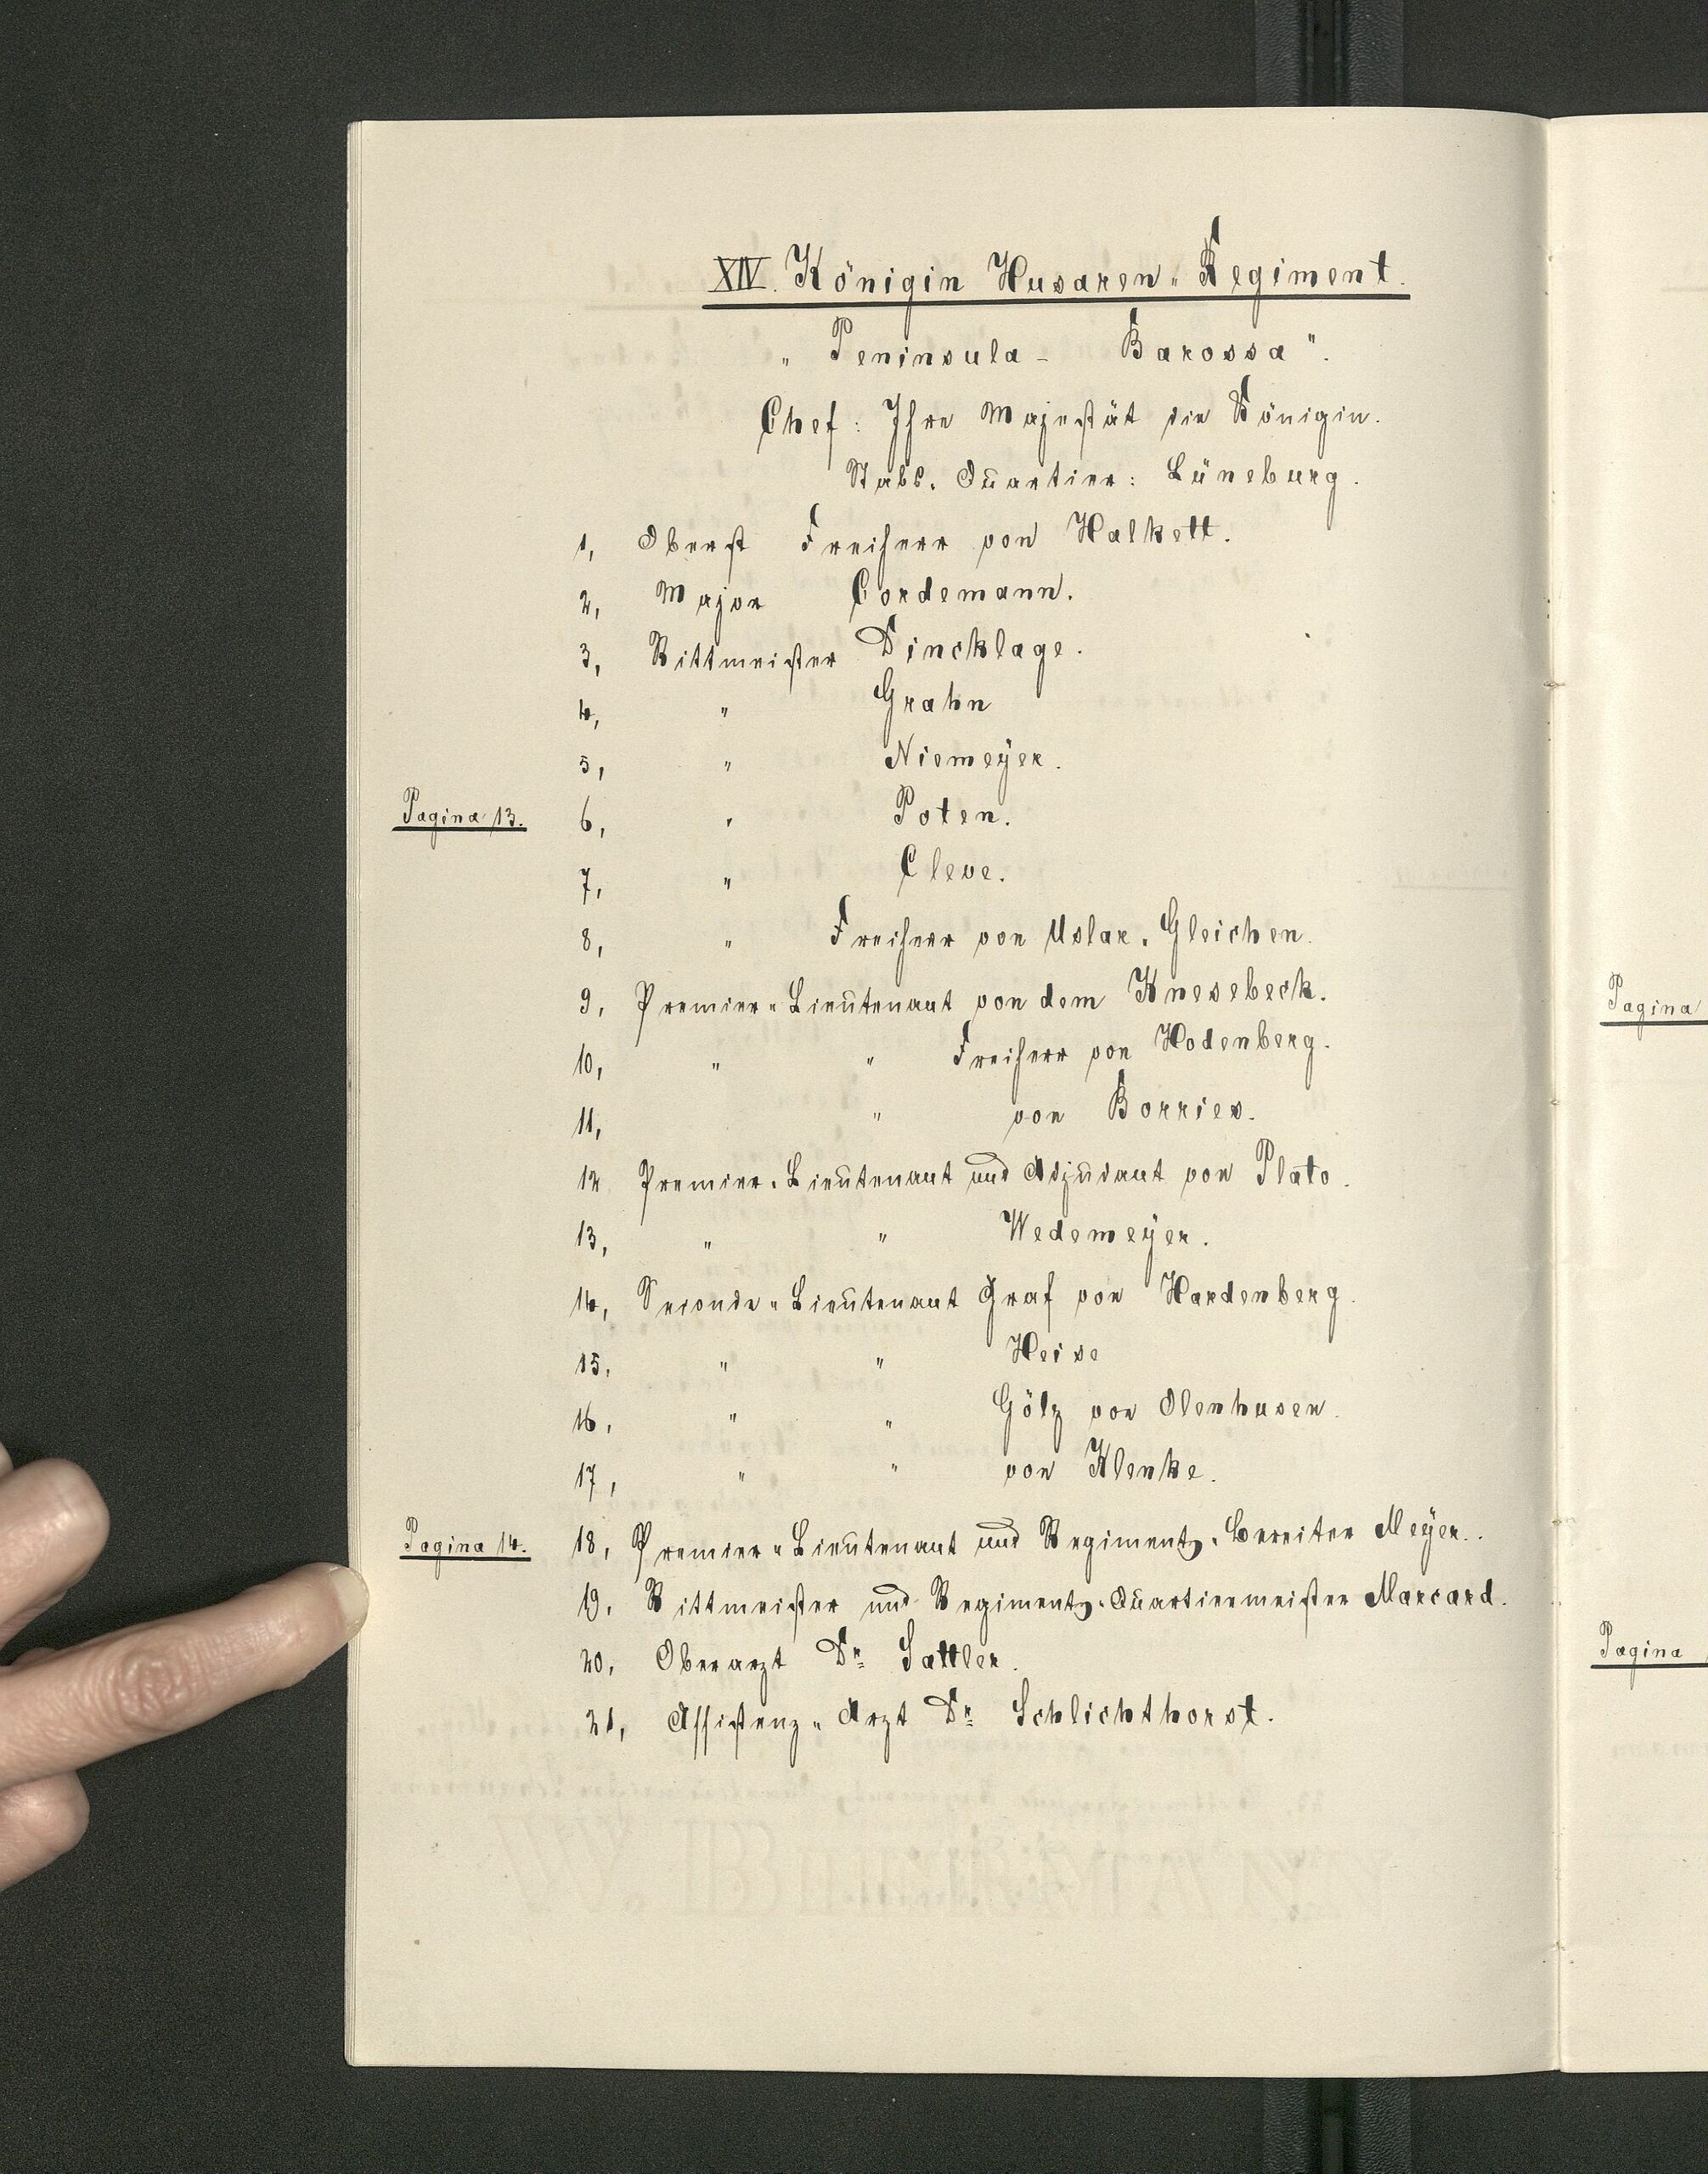 XIV. Königin Husaren-Regiment.
"Peninsula - Barossa".
Chef: Ihre Majestät die Königin.
Stabs-Quartier: Lüneburg.
1, Oberst Freiherr von Halkett.
2, Major Cordemann.
3, Rittmeister Dincklage.
4, " Grahn
5, " Niemeÿer.
Pagina 13. 6, " Poten.
7, " Cleve.
8, " Freiherr von Uslar-Gleichen.
9, Premier-Lieutenant von dem Knesebeck.
10, " " Freiherr von Hodenberg.
11, " von Borries.
12 Premier-Lieutenant und Adjudant von Plato.
13, " " Wedemeÿer.
14, Seconde-Lieutenant Graf von Hardenberg.
15, " " Heise
16, " " Gölz von Olenhusen.
17, " " von Klenke.
Pagina 14. 18, Premier-Lieutenant und Regiments-Bereiter Meÿer.
19, Rittmeister und Regiments-Quartiermeister Marcard.
20, Oberarzt Dr. Sattler.
21, Assistenz-Arzt Dr. Schlichthorst.
Pagina
Pagina